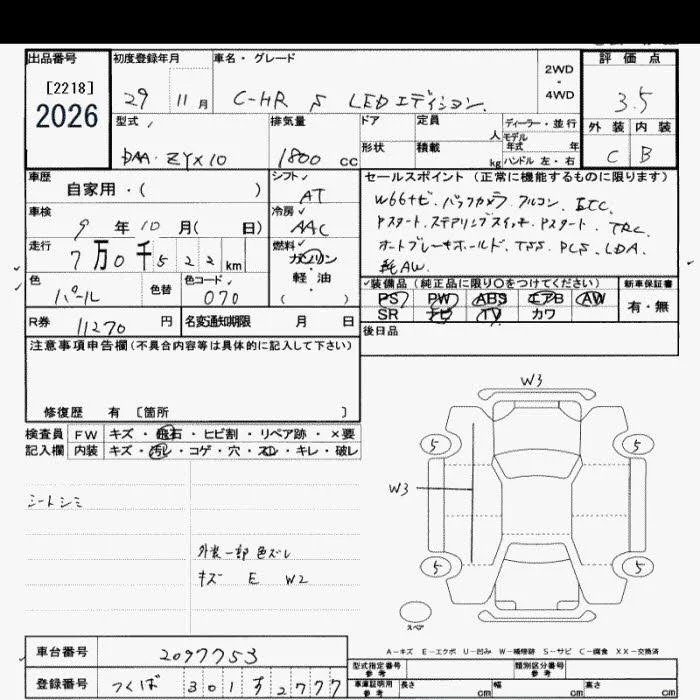 出品番号 初度登録年月 車名・グレード 2WD・4WD 評価点
[2218]
2026
29 11月 C-HR S LEDエディション 3.5
型式 排気量 ドア 定員 人 ディーラー・並行 外装 内装
モデル年式 年
DAA-ZYX10 1800cc 形状 積載 kg ハンドル 左・右 C B
車歴 シフト セールスポイント(正常に機能するものに限ります)
自家用・( ) AT
W66ナビ.バックカメラ.アルコン.ETC.
車検 冷房
9年10月( 日) AAC
Pスタート.ステアリングスイッチ.Pスタート.TRC.
走行 燃料
7万0千522km ガソリン
オートブレーキホールド.TSS.PCS.LDA.
軽・油
純AW.
色 色替 色コード
パール 070 ( )
装備品(純正品に限り○をつけてください) 新車保証書
PS PW ABS エアB AW 有・無
SR ナビ TV カワ
R券 11270円 名変通知期限 月 日
後日品
注意事項申告欄(不具合内容等は具体的に記入して下さい)
修復歴 有 [箇所 ]
検査員 FW キズ・飛石・ヒビ割・リペア跡・×要
記入欄 内装 キズ・汚レ・コゲ・穴・スレ・キレ・破レ
シートシミ
外装一部色ズレ
キズ E W2
W3
5 5
W3
5 5
スペア
A-キズ E-エクボ U-凹み W-補修跡 S-サビ C-腐食 XX-交換済
車台番号 2097753
登録番号 つくば 301 す 2777
型式指定番号 参考 類別区分番号 参考
車庫証明用 参考 長さ cm 幅 cm 高さ cm